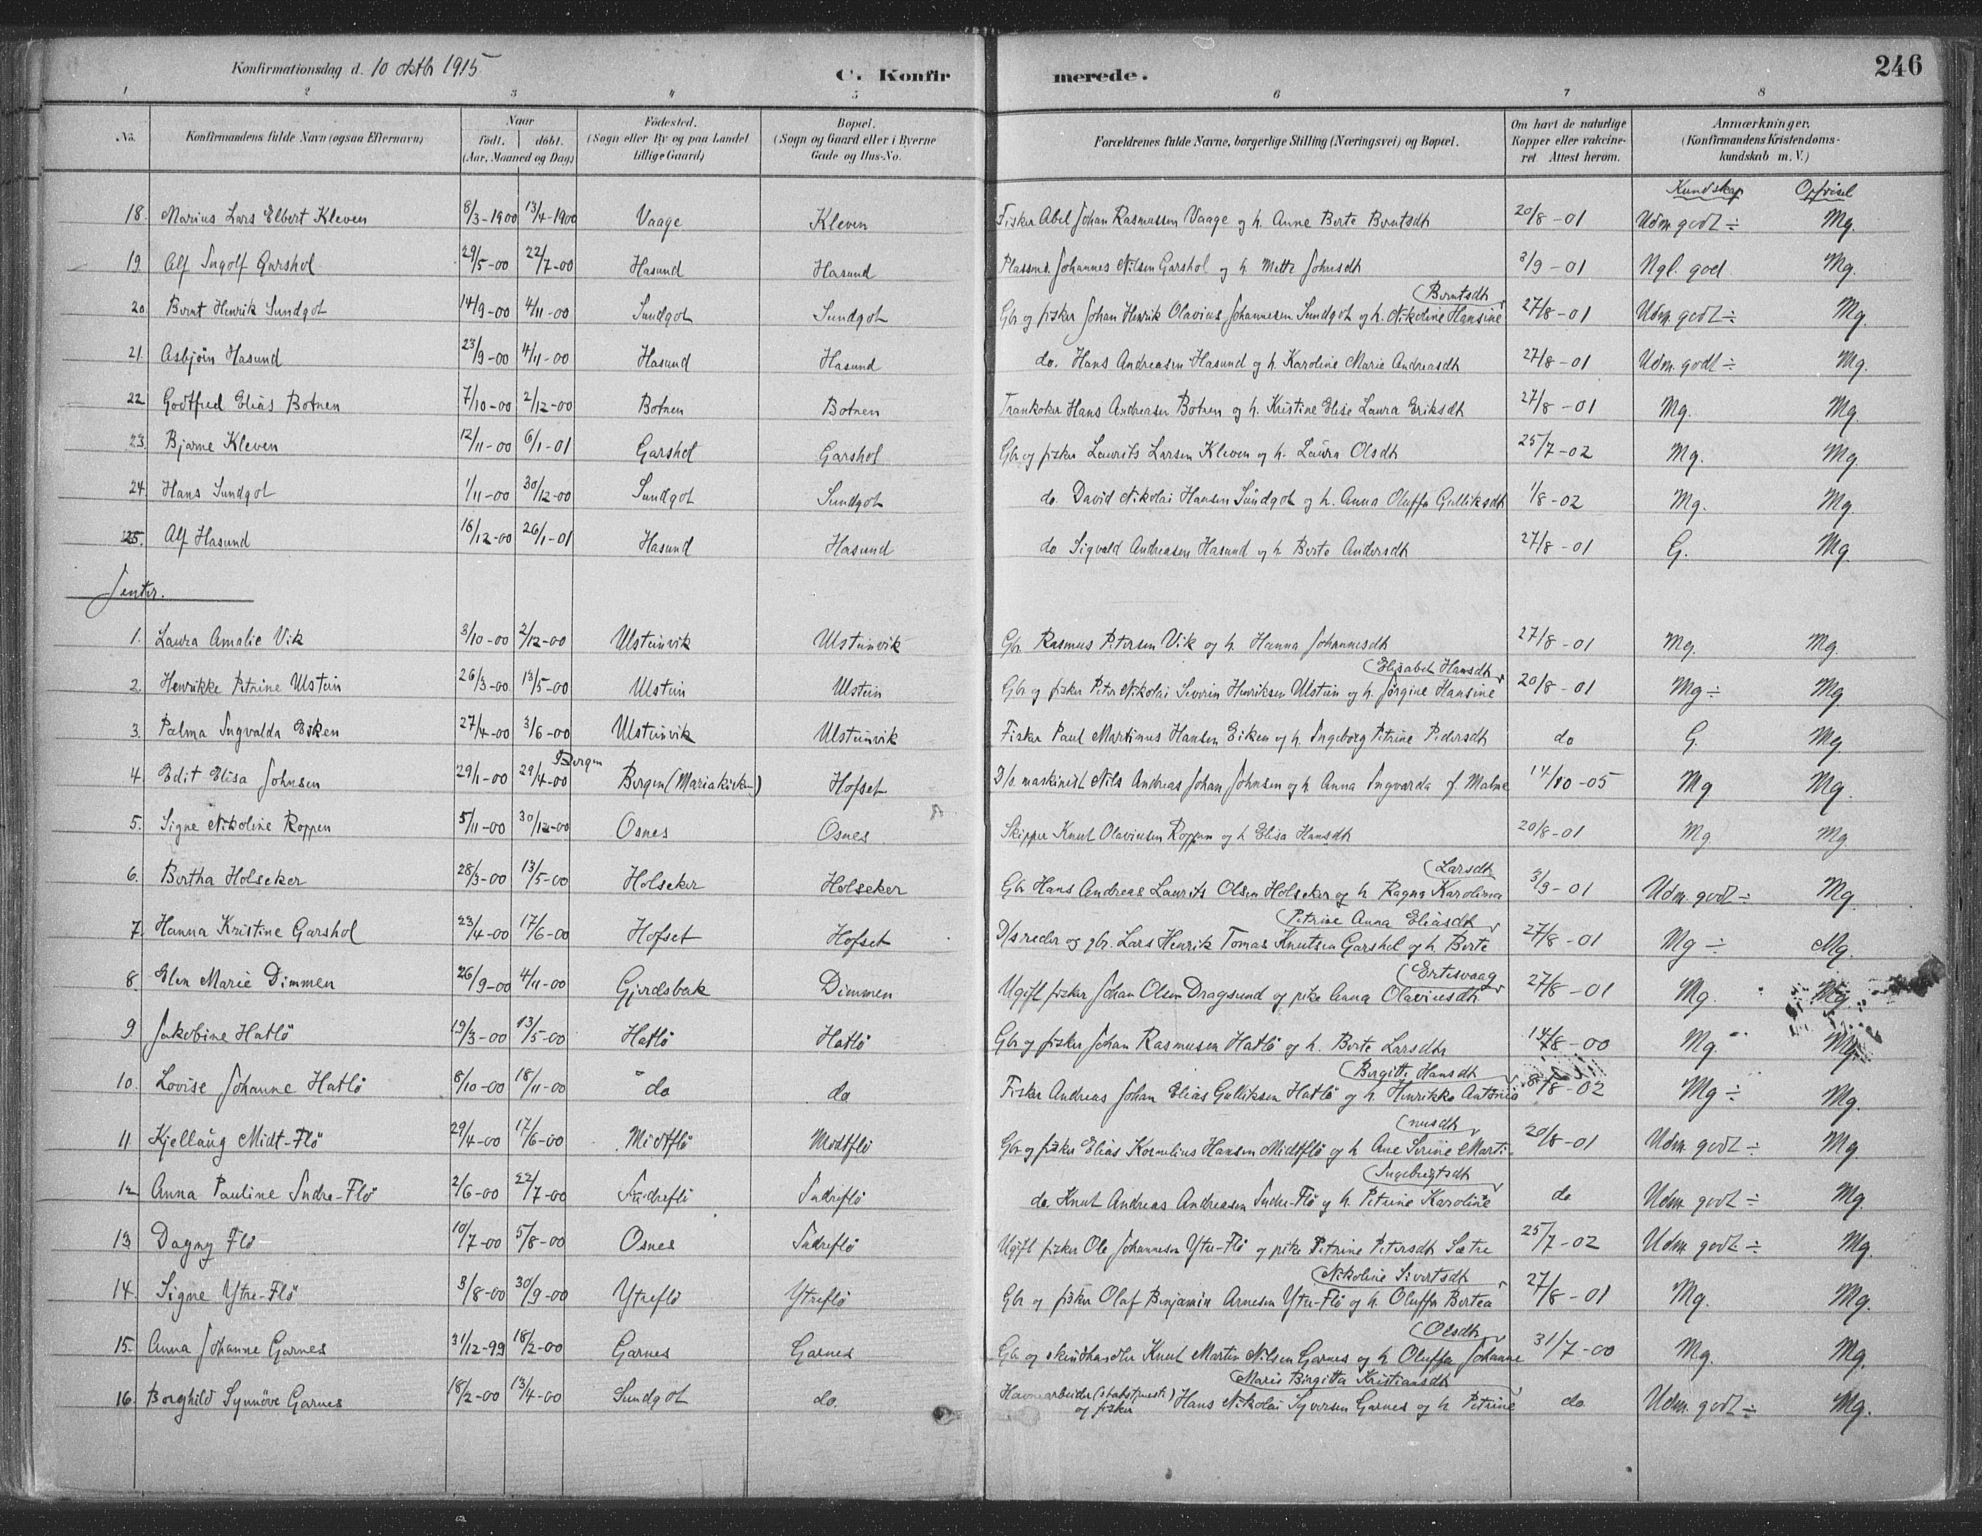 Konfirmationsdag d. 10 oktb 1915 C. Konfirmerede. 246
1 2 3 4 5 6 7 8
No. Konfirmandens fulde Navn (ogsaa Efternavn) Naar født. døbt. (Aar, Maaned og Dag) Fødested. (Sogn eller By og paa Landet tillige Gaard) Bopæl. (Sogn og Gaard eller i Byerne Gade og Hus-No. Forældrenes fulde Navne, borgerlige Stilling (Næringsvei) og Bopæl. Om havt de naturlige Kopper eller vakcineret. Attest herom. Anmærkninger. (Konfirmandens Kristendomskundskab m. V.)
Kundskap Opførsel
18. Marius Lars Elbert Kleven 8/3-1900 13/4-1900 Vaage Kleven Fisker Abel Johan Rasmussen Vaage og h. Anne Berte Berntsdt 20/8-01 Udm. godt ÷ Mg.
19 Alf Ingolf Garshol 29/5-00 22/7-00 Hasund Hasund Plassm. Johannes Nilsen Garshol og h. Mette Johnsdt 3/9-01 Ngl. god Mg.
20 Bernt Henrik Sundgot 14/9-00 4/11-00 Sundgot Sundgot Gbr og fisker Johan Henrik Olavius Johannesen Sundgot og h. Nikoline Hansine (Berntsdt 27/8-01 Udm. godt ÷ Mg.
21. Asbjørn Hasund 23/9-00 4/11-00 Hasund Hasund do. Hans Andreasen Hasund og h. Karoline Marie Andreasdt 27/8-01 Udm. godt ÷ Mg.
22 Godtfred Elias Botnen 7/10-00 2/12-00 Botnen Botnen Trankoker Hans Andreasen Botnen og h. Kristine Elise Laura Eriksdt 27/8-01 Mg. Mg.
23. Bjarne Kleven 12/11-00 6/1-01 Garshol Garshol Gbr og fisker Laurits Larsen Kleven og h. Laura Olsdt 25/7-02 Mg. Mg.
24 Hans Sundgot 1/11-00 30/12-00 Sundgot Sundgot do. David Nikolai Hansen Sundgot og h. Anna Oluffa Gulliksdt 1/8-02 Mg. Mg.
25. Alf Hasund 16/12-00 26/1-01 Hasund Hasund do Sigvald Andreasen Hasund og h Berte Andersdt 27/8-01 G. Mg.
Jenter.
1. Laura Amalie Vik 3/10-00 2/12-00 Ulsteinvik Ulsteinvik Gbr. Rasmus Petersen Vik og h. Hanna Johannesdt 27/8-01 Mg. Mg.
2. Henrikke Petrine Ulstein 26/3-00 13/5-00 Ulstein Ulstein Gbr og fisker Peter Nikolai Severin Henriksen Ulstein og h. Jørgine Hansine (Elisabet Hansdt 20/8-01 Mg ÷ Mg
3. Palma Ingvalda Eiken 27/4-00 3/6-00 Ulsteinvik Ulsteinvik Fisker Paul Martinus Hansen Eiken og h. Ingeborg Petrine Pedersdt do G. Mg
4. Edit Elisa Johnsen 29/1-00 29/4-00 Bergen Bergen (Mariakirken) Hofset D/s. maskinist Nils Andreas Johan Johnsen og h Anna Ingvarda f. Malme 14/10-05 Mg Mg.
5. Signe Nikoline Roppen 5/11-00 30/12-00 Osnes Osnes Skipper Knut Olaviusen Roppen og h Elisa Hansdt 20/8-01 Mg Mg
6. Bertha Holseker 28/3-00 13/5-00 Holseker Holseker Gbr Hans Andreas Laurits Olsen Holseker og h Ragna Karolina (Larsdt 3/9-01 Udm. godt ÷ Mg.
7. Hanna Kristine Garshol 23/4-00 17/6-00 Hofset Hofset D/s reder og gbr. Lars Henrik Tomas Knutsen Garshol og h. Berte (Petrine Anna Eliasdt 27/8-01 Mg ÷ Mg.
8. Elen Marie Dimmen 26/9-00 4/11-00 Gjerdsbak Dimmen Ugift fisker Johan Olsen Dragsund og pike Anna Olaviusdt (Ertesvaag 27/8-01 Mg. Mg
9 Jakobine Hatlø 19/3-00 13/5-00 Hatlø Hatlø Gbr og fisker Johan Rasmusen Hatlø og h. Berte Larsdt 14/8-00 Mg. Mg.
10. Lovise Johanne Hatlø 8/10-00 18/11-00 do do Fisker Andreas Johan Elias Gulliksen Hatlø og h. Henrikke Antonia (Birgitte Hansdt 8/8-02 Mg ÷ Mg.
11 Kjellaug Midt-Flø 29/4-00 17/6-00 Midtflø Midtflø Gbr og fisker Elias Kornelius Hansen Midtflø og h Ane Serine Marti- (nusdt 20/8-01 Udm. godt ÷ Mg.
12 Anna Pauline Indre-Flø 2/6-00 22/7-00 Indreflø Indreflø do. Knut Andreas Andreasen Indre-Flø og h. Petrine Karoline (Ingebrigtsdt do Udm. godt ÷ Mg.
13 Dagny Flø 10/7-00 5/8-00 Osnes Indreflø Ugift fisker Ole Johannesen Ytre-Flø og pike Petrine Petersdt Sætre 25/7-02 Udm. godt ÷ Mg.
14. Signe Ytre-Flø 3/8-00 30/9-00 Ytreflø Ytreflø Gbr og fisker Olaf Benjamin Arnesen Ytre-Flø og h. Oluffa Bertea (Nikoline Sivertsdt 27/8-01 Mg. Mg.
15. Anna Johanne Garnes 31/12-99 18/2-00 Garnes Garnes Gbr og skindhandler Knut Martin Nilsen Garnes og h Oluffa Johanne (Olsdt 31/7-00 Mg. Mg.
16. Borghild Synnøve Garnes 18/2-00 13/4-00 Sundgot do. Havnearbeider og fisker Hans Nikolai Syversen Garnes og h Petrine (Marie Birgitta Kristiansdt do Udm. godt ÷ Mg.